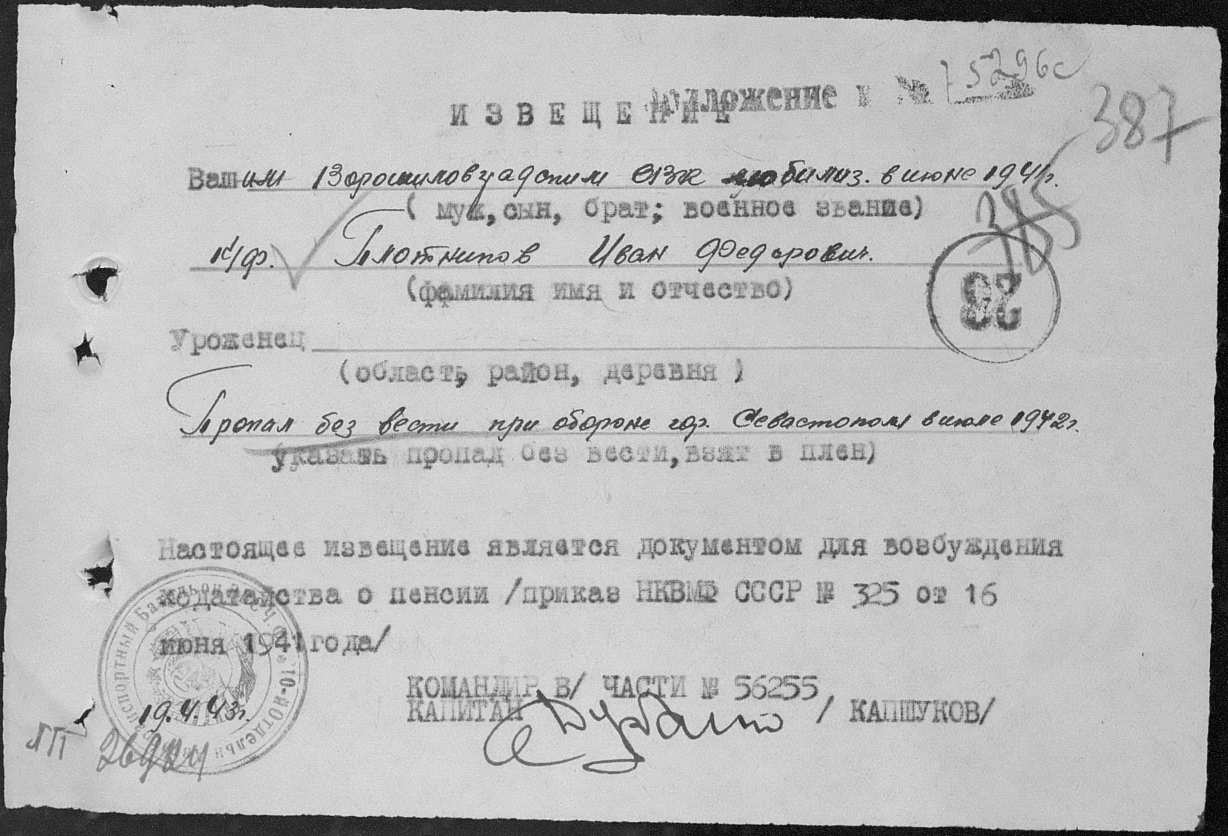 Приложение к № 75296с
ИЗВЕЩЕНИЕ
387
Вашим Ворошиловградским ВК мобилиз. в июне 1941г.
( муж, сын, брат; военное звание)
385
к/ф. Плотников Иван Федорович.
(фамилия имя и отчество)
28
Уроженец
(область, район, деревня )
Пропал без вести при обороне гор. Севастополя в июле 1942г.
указать пропад без вести, взят в плен)
Настоящее извещение является документом для возбуждения
ходатайства о пенсии /приказ НКВМФ СССР № 325 от 16
июня 1941 года/
КОМАНДИР В/ ЧАСТИ № 56255
КАПИТАН / КАПШУКОВ/
19.4.43г.